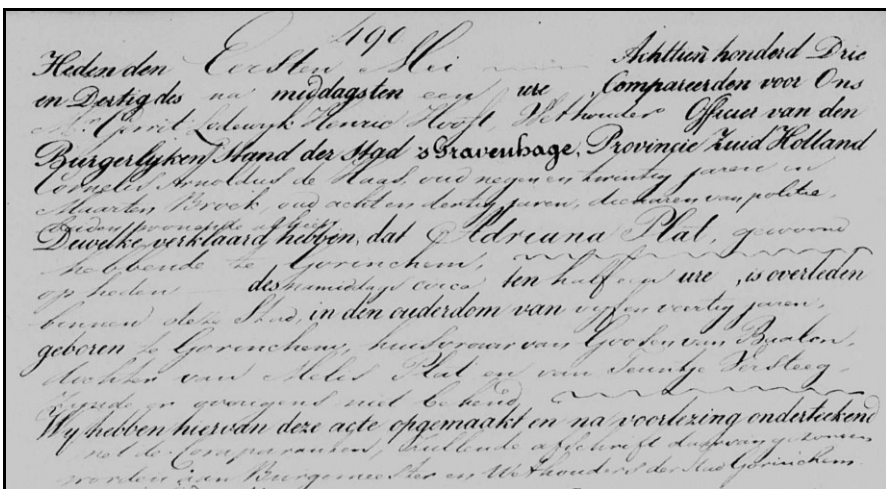 490
Heden den Eersten Mei Achttien honderd Drie
en Dertig des na middags ten een ure, Compareerden voor Ons
Mr. Gerrit Lodewyk Hendrik Hooft, Wethouder Officier van den
Burgerlyken Stand der Stad 's Gravenhage, Provincie Zuid Holland
Cornelis Arnoldus de Haas, oud negen en twintig jaren en
Maarten Broek, oud acht en dertig jaren, dienaren van politie,
beiden wonende alhier
Dewelke verklaard hebben, dat Adriana Plat, gewoond
hebbende te Gorinchem,
op heden des namiddags circa ten half een ure, is overleden
binnen deze Stad, in den ouderdom van vyf en veertig jaren,
geboren te Gorinchem, huisvrouw van Goosen van Baalen,
dochter van Meles Plat en van Teuntje Versteeg,
zynde er overigens niet bekend,
Wy hebben hiervan deze acte opgemaakt en na voorlezing onderteekend
met de Comparanten, zullende afschrift daarvan gezonden
worden aan Burgemeester en Wethouders der Stad Gorinchem.